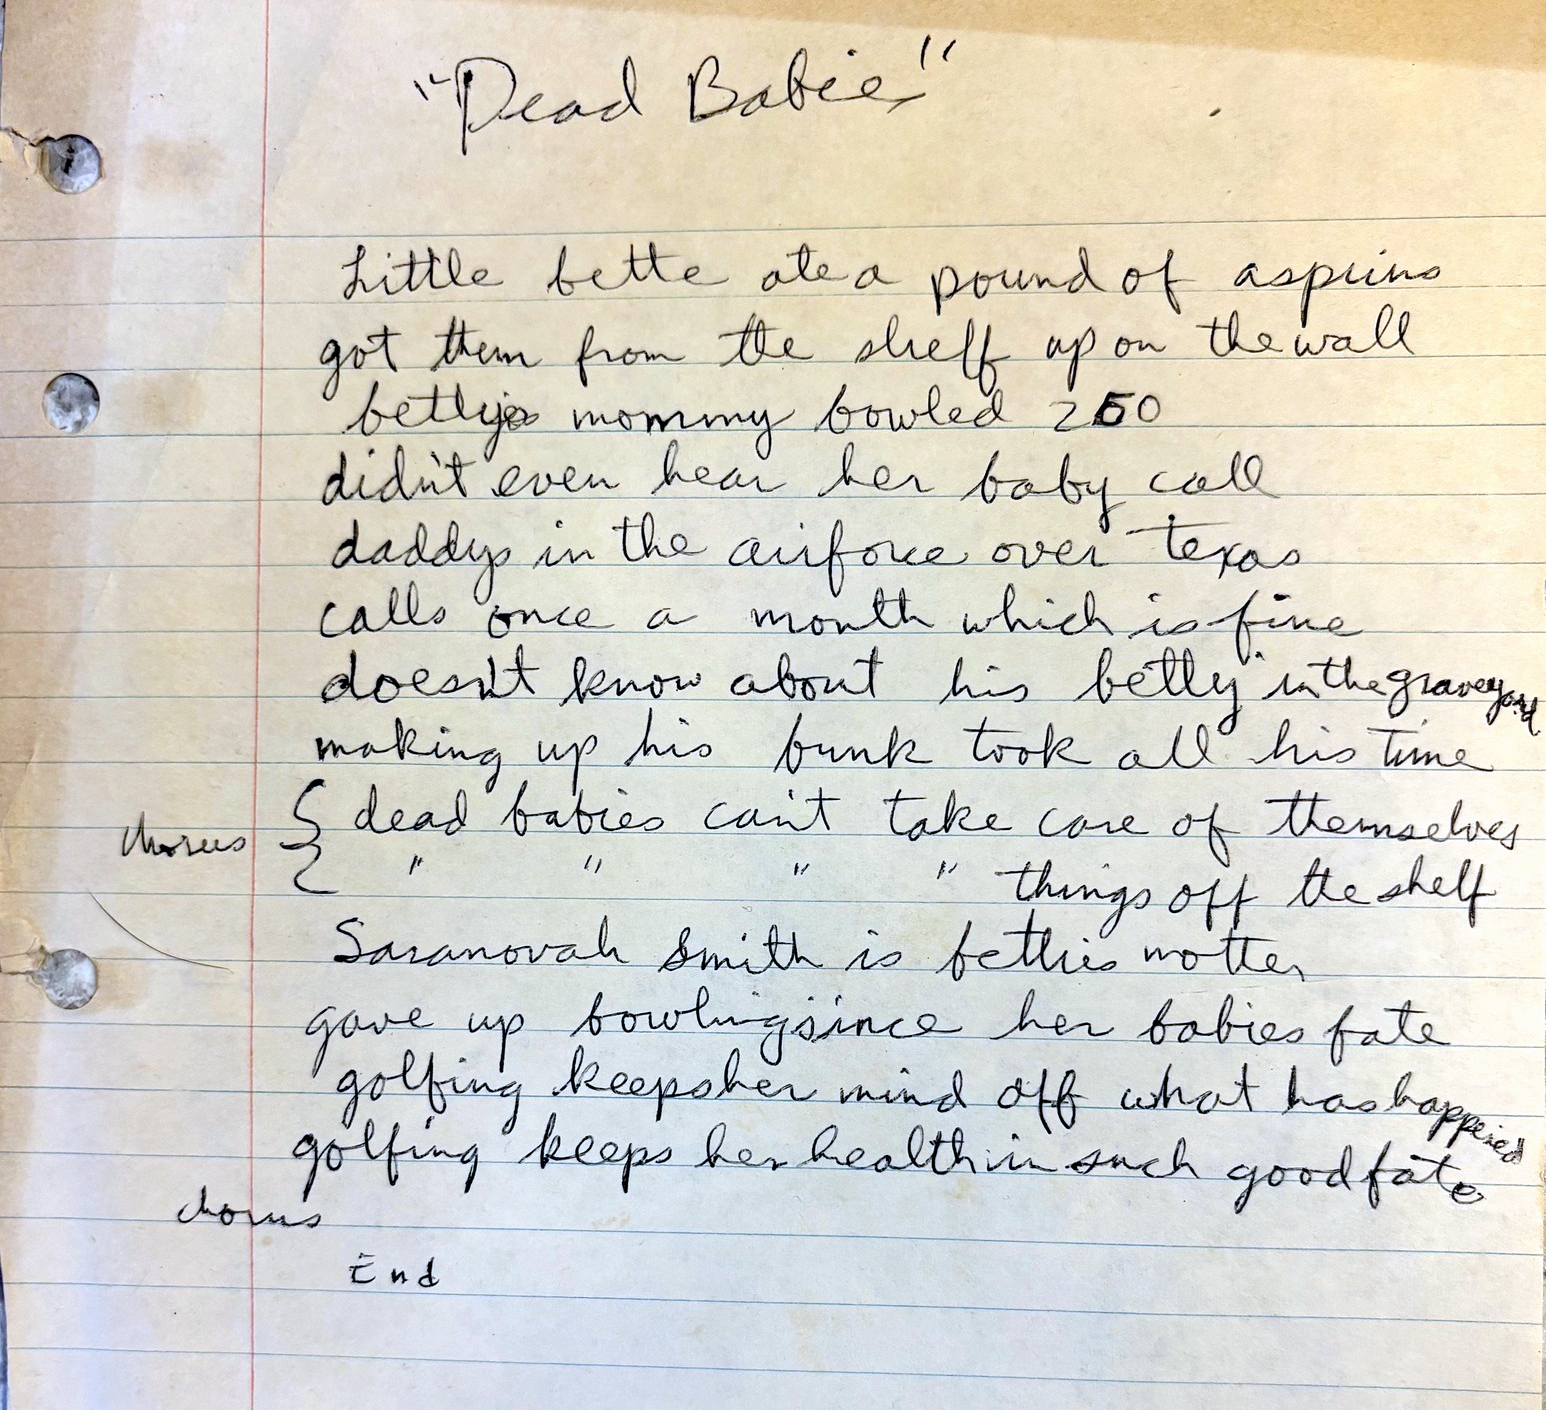 "Dead Babies"
Little bette ate a pound of aspirins
got them from the shelf up on the wall
bettys mommy bowled 250
didn't even hear her baby call
daddys in the airforce over texas
calls once a month which is fine
doesn't know about his betty in the graveyard
making up his bunk took all his time
chorus { dead babies can't take care of themselves
" " " " things off the shelf
Saranovah Smith is betties motter
gave up bowling since her babies fate
golfing keeps her mind off what has happened
golfing keeps her health in such good fate
chorus
End